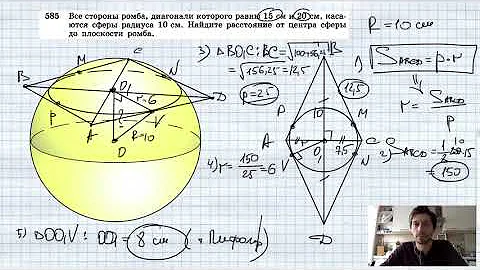 585 Все стороны ромба, диагонали которого равны 15 см и 20 см, каса-
ются сферы радиуса 10 см. Найдите расстояние от центра сферы
до плоскости ромба.
R = 10 см
3) ΔBO₁C: BC = √100+56,4
= √156,25 = 12,5
p = 25
1) S_ABCD = p·r
r = S_ABCD / p
2) S_ABCD = 1/2 · 20·15
= 150
4) r = 150/25 = 6
5) ΔOO₁V: OO₁ = 8 см (т. Пифагор)
B
C
N
D
V
A
P
M
O₁
r=6
R=10
O
B
P
M
A
C
V
N
O₁
D
10
7,5
12,5